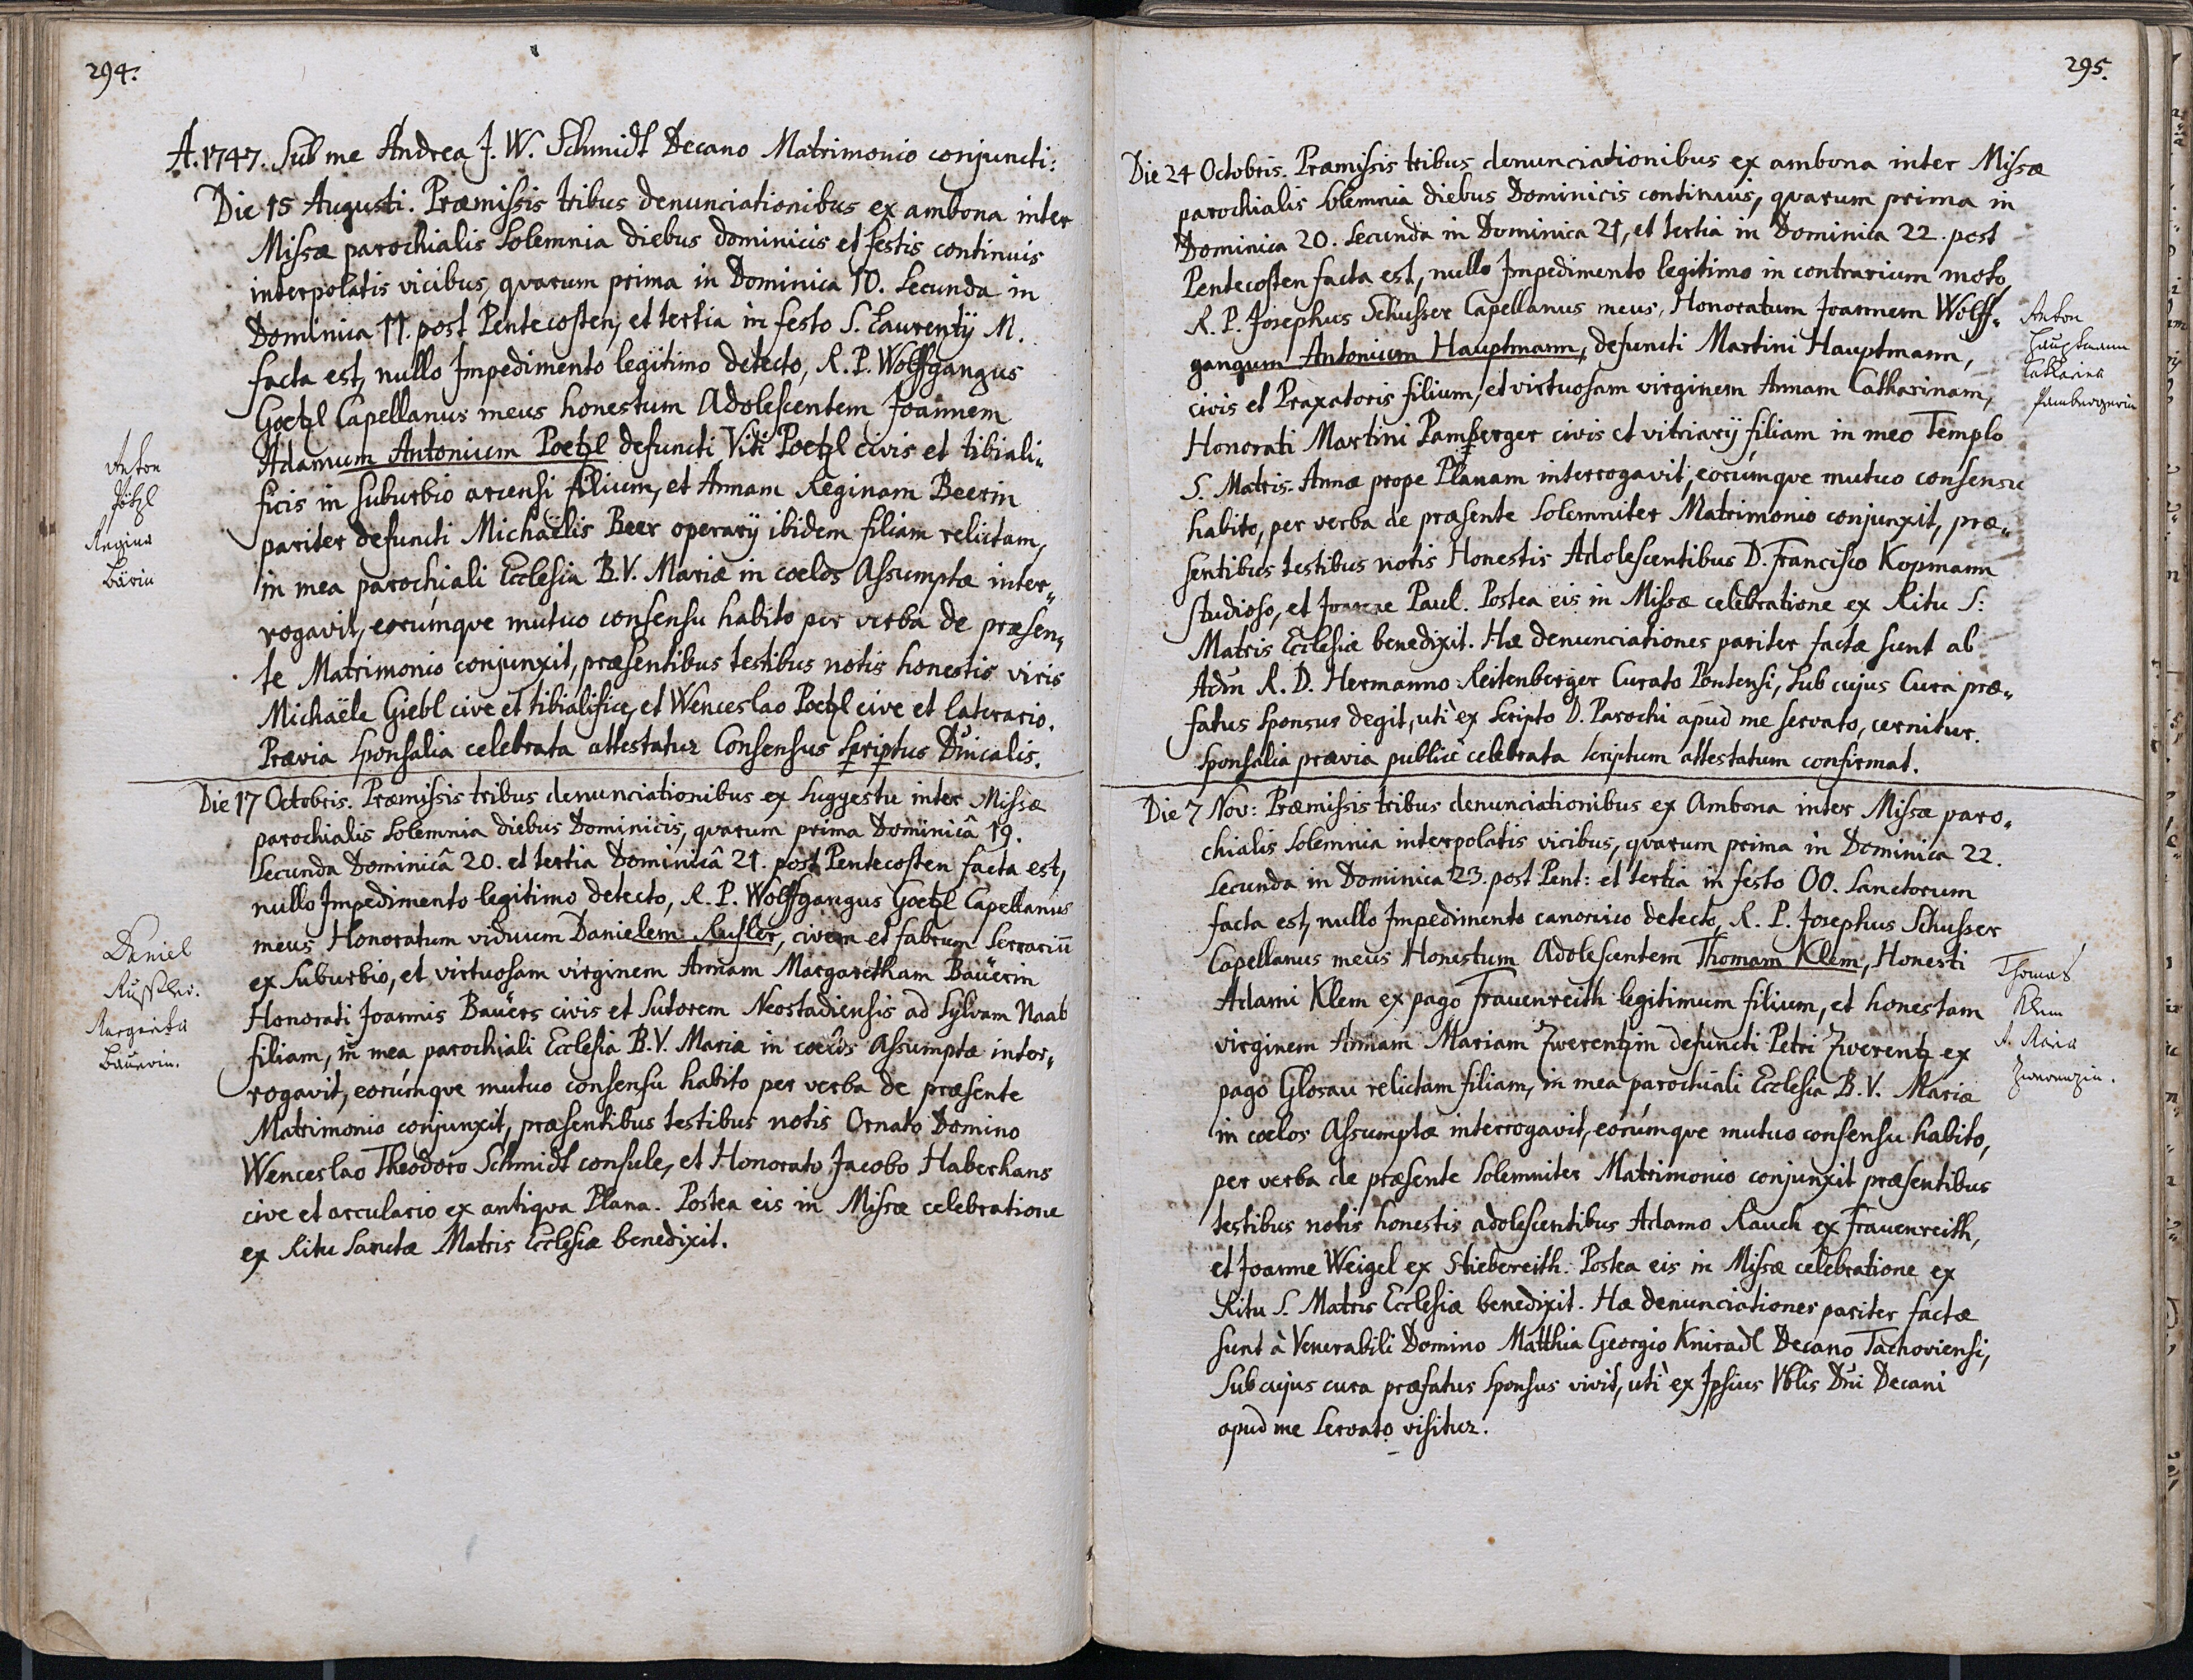 294.
A. 1747. Sub me Andrea J. W. Schmidt Decano Matrimonio conjuncti:
Die 15 Augusti. Præmissis tribus denunciationibus ex ambona inter
Missæ parochialis Solemnia diebus dominicis et festis continuis
interpolatis vicibus, quarum prima in Dominica 10. Secunda in
Dominica 11. post Pentecosten, et tertia in festo S. Laurentÿ M.
facta est, nullo Impedimento legitimo detecto, R. P. Wolffgangus
Goetzl Capellanus meus honestum Adolescentem Joannem
Adamum Antonium Poetzl defuncti Viti Poetzl civis et tibiali„
ficis in suburbio arcensi filium, et Annam Reginam Beerin
pariter defuncti Michaëlis Beer operarÿ ibidem filiam relictam,
in mea parochiali Ecclesia B. V. Mariæ in coelos Assumptæ inter„
rogavit, eorúmque mutuo consensu habito per verba de præsen„
te Matrimonio conjunxit, præsentibus testibus notis honestis viris
Michaële Giebl cive et tibialifice, et Wenceslao Poetzl cive et laterario.
Prævia Sponsalia celebrata attestatur Consensus Scriptus Dnicalis.
Anton
Pötzl
Regina
Bärin
Die 17 Octobris. Præmissis tribus denunciationibus ex Suggestu inter Missæ
parochialis Solemnia diebus Dominicis, quarum prima Dominicâ 19.
Secunda Dominicâ 20. et tertia Dominicâ 21. post Pentecosten facta est,
nullo Impedimento legitimo detecto, R. P. Wolffgangus Goetzl Capellanus
meus Honoratum viduum Danielem Rusler, civem et fabrum Serrariū
ex Suburbio, et virtuosam virginem Annam Margaretham Bauërin
Honorati Joannis Bauërs civis et Sutorem Neostadiensis ad Sylvam Naab
filiam, in mea parochiali Ecclesia B. V. Mariæ in coelos Assumptæ inter„
rogavit, eorúmque mutuo consensu habito per verba de præsente
Matrimonio conjunxit, præsentibus testibus notis Ornato Domino
Wenceslao Theodoro Schmidt consule, et Honorato Jacobo Haberhans
cive et arculario ex antiqua Plana. Postea eis in Missæ celebratione
ex Ritu Sanctæ Matris Ecclesiæ benedixit.
Daniel
Russler.
Margaretha
Bauerin.
295.
Die 24 Octobris. Præmissis tribus denunciationibus ex ambona inter Missæ
parochialis Solemnia diebus Dominicis continuis, quarum prima in
Dominica 20. Secunda in Dominica 21, et tertia in Dominica 22. post
Pentecosten facta est, nullo Impedimento legitimo in contrarium moto,
R. P. Josephus Schusser Capellanus meus, Honoratum Joannem Wolff„
gangum Antonium Hauptmann, defuncti Martini Hauptmann,
civis et Praxatoris filium, et virtuosam virginem Annam Catharinam,
Honorati Martini Pamberger civis et vitriarÿ filiam in meo Templo
S. Matris Annæ prope Planam interrogavit, eorúmque mutuo consensu
habito, per verba de præsente Solemniter Matrimonio conjunxit, præ„
sentibus testibus notis Honestis Adolescentibus D. Francisco Kopmann
studioso, et Joanne Paul. Postea eis in Missæ celebratione ex Ritu S:
Matris Ecclesiæ benedixit. Hæ denunciationes pariter factæ sunt ab
Adm R. D. Hermanno Reitenberger Curato Pontensi, Sub cujus Cura præ„
fatus Sponsus degit, uti ex Scripto D. Parochi apud me servato, cernitur.
Sponsalia prævia publicè celebrata Scriptum attestatum confirmat.
Anton
Hauptmann
Catharina
Pambergerin
Die 7 Nov: Præmissis tribus denunciationibus ex Ambona inter Missæ paro„
chialis Solemnia interpolatis vicibus, quarum prima in Dominica 22.
Secunda in Dominica 23. post Pent: et tertia in festo OO. Sanctorum
facta est, nullo Impedimento canonico detecto, R. P. Josephus Schusser
Capellanus meus Honestum Adolescentem Thomam Klem, Honesti
Adami Klem ex pago Frauenreith legitimum filium, et honestam
virginem Annam Mariam Zwerentzin defuncti Petri Zwerentz ex
pago Glosau relictam filiam, in mea parochiali Ecclesia B. V. Mariæ
in coelos Assumptæ interrogavit, eorúmque mutuo consensu habito,
per verba de præsente Solemniter Matrimonio conjunxit præsentibus
testibus notis honestis adolescentibus Adamo Rauch ex Frauenreith,
et Joanne Weigel ex Stiebereith. Postea eis in Missæ celebratione ex
Ritu S. Matris Ecclesiæ benedixit. Hæ denunciationes pariter factæ
sunt à Venerabili Domino Matthia Georgio Kniradl Decano Tachoviensi,
Sub cujus cura præfatus Sponsus vivit, uti ex Ipsius Vblis Dni Decani
apud me Servato visitur.
Thomas
Klem
A. Maria
Zwerenzin.